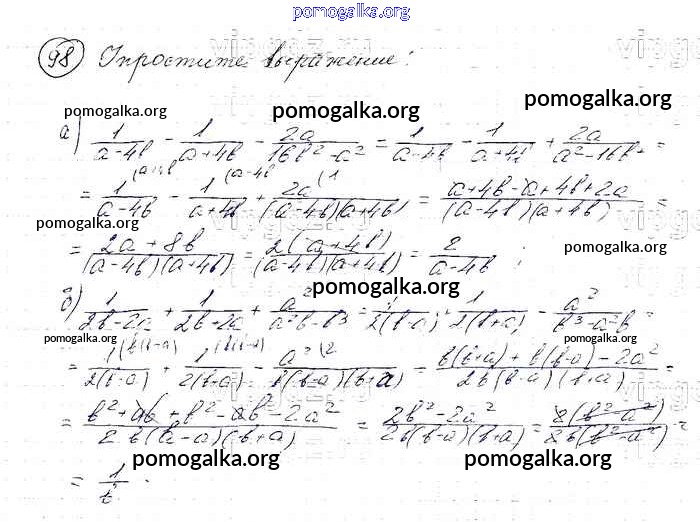 pomogalka.org
98 Упростите выражение:
pomogalka.org pomogalka.org pomogalka.org
а) 1/(a-4b) - 1/(a+4b) - 2a/(16b²-a²) = 1/(a-4b) - 1/(a+4b) + 2a/(a²-16b²) =
= 1/(a-4b) - 1/(a+4b) + 2a/((a-4b)(a+4b)) = (a+4b-a+4b+2a)/((a-4b)(a+4b)) =
pomogalka.org
= (2a+8b)/((a-4b)(a+4b)) = 2(a+4b)/((a-4b)(a+4b)) = 2/(a-4b) ;
pomogalka.org
pomogalka.org
б) 1/(2b-2a) + 1/(2b+2a) + a²/(a²b-b³) = 1/(2(b-a)) + 1/(2(b+a)) - a²/(b³-a²b) =
pomogalka.org pomogalka.org
= 1/(2(b-a)) + 1/(2(b+a)) - a²/(b(b-a)(b+a)) = (b(b+a)+b(b-a)-2a²)/(2b(b-a)(b+a)) =
= (b²+ab+b²-ab-2a²)/(2b(b-a)(b+a)) = (2b²-2a²)/(2b(b-a)(b+a)) = 2(b²-a²)/(2b(b²-a²)) =
pomogalka.org pomogalka.org
= 1/b .